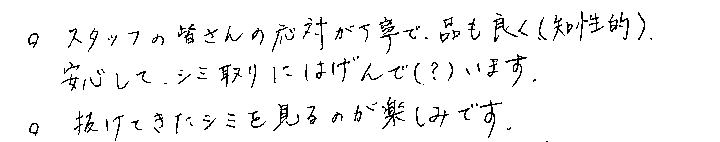 ○ スタッフの皆さんの応対が丁寧で、品も良く(知性的)、
安心して、シミ取りにはげんで(?)います。
○ 抜けてきたシミを見るのが楽しみです。